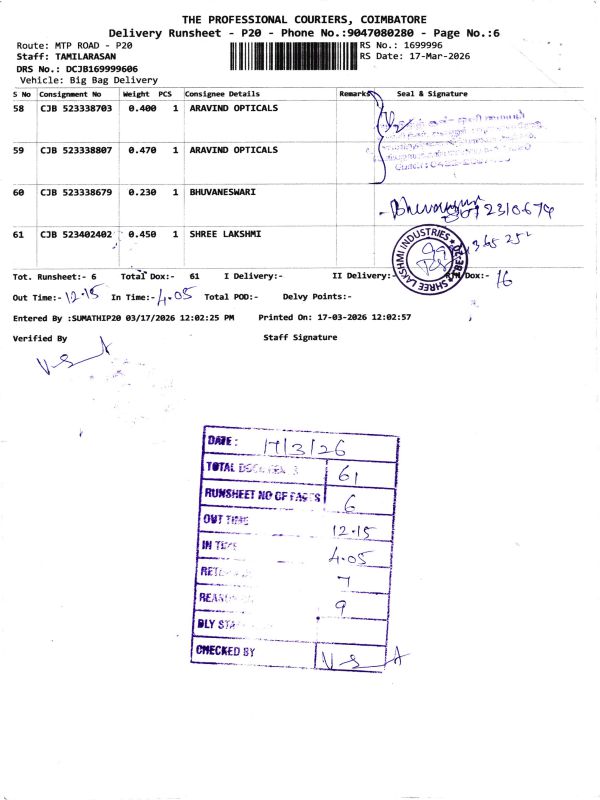 THE PROFESSIONAL COURIERS, COIMBATORE
Delivery Runsheet - P20 - Phone No.:9047080280 - Page No.:6
Route: MTP ROAD - P20
RS No.: 1699996
Staff: TAMILARASAN
RS Date: 17-Mar-2026
DRS No.: DCJB169999606
Vehicle: Big Bag Delivery
S No Consignment No Weight PCS Consignee Details Remarks Seal & Signature
58 CJB 523338703 0.400 1 ARAVIND OPTICALS
59 CJB 523338807 0.470 1 ARAVIND OPTICALS
60 CJB 523338679 0.230 1 BHUVANESWARI
61 CJB 523402402 0.450 1 SHREE LAKSHMI
SHREE LAKSHMI INDUSTRIES
Tot. Runsheet:- 6 Total Dox:- 61 I Delivery:- II Delivery:- Dox:- 16
Out Time:- 12.15 In Time:- 4.05 Total POD:- Delvy Points:-
Entered By :SUMATHIP20 03/17/2026 12:02:25 PM Printed On: 17-03-2026 12:02:57
Verified By Staff Signature
DATE: 17/3/26
TOTAL 61
RUNSHEET NO OF PAGES 6
OUT TIME 12.15
IN TIME 4.05
7
9
DLY
CHECKED BY